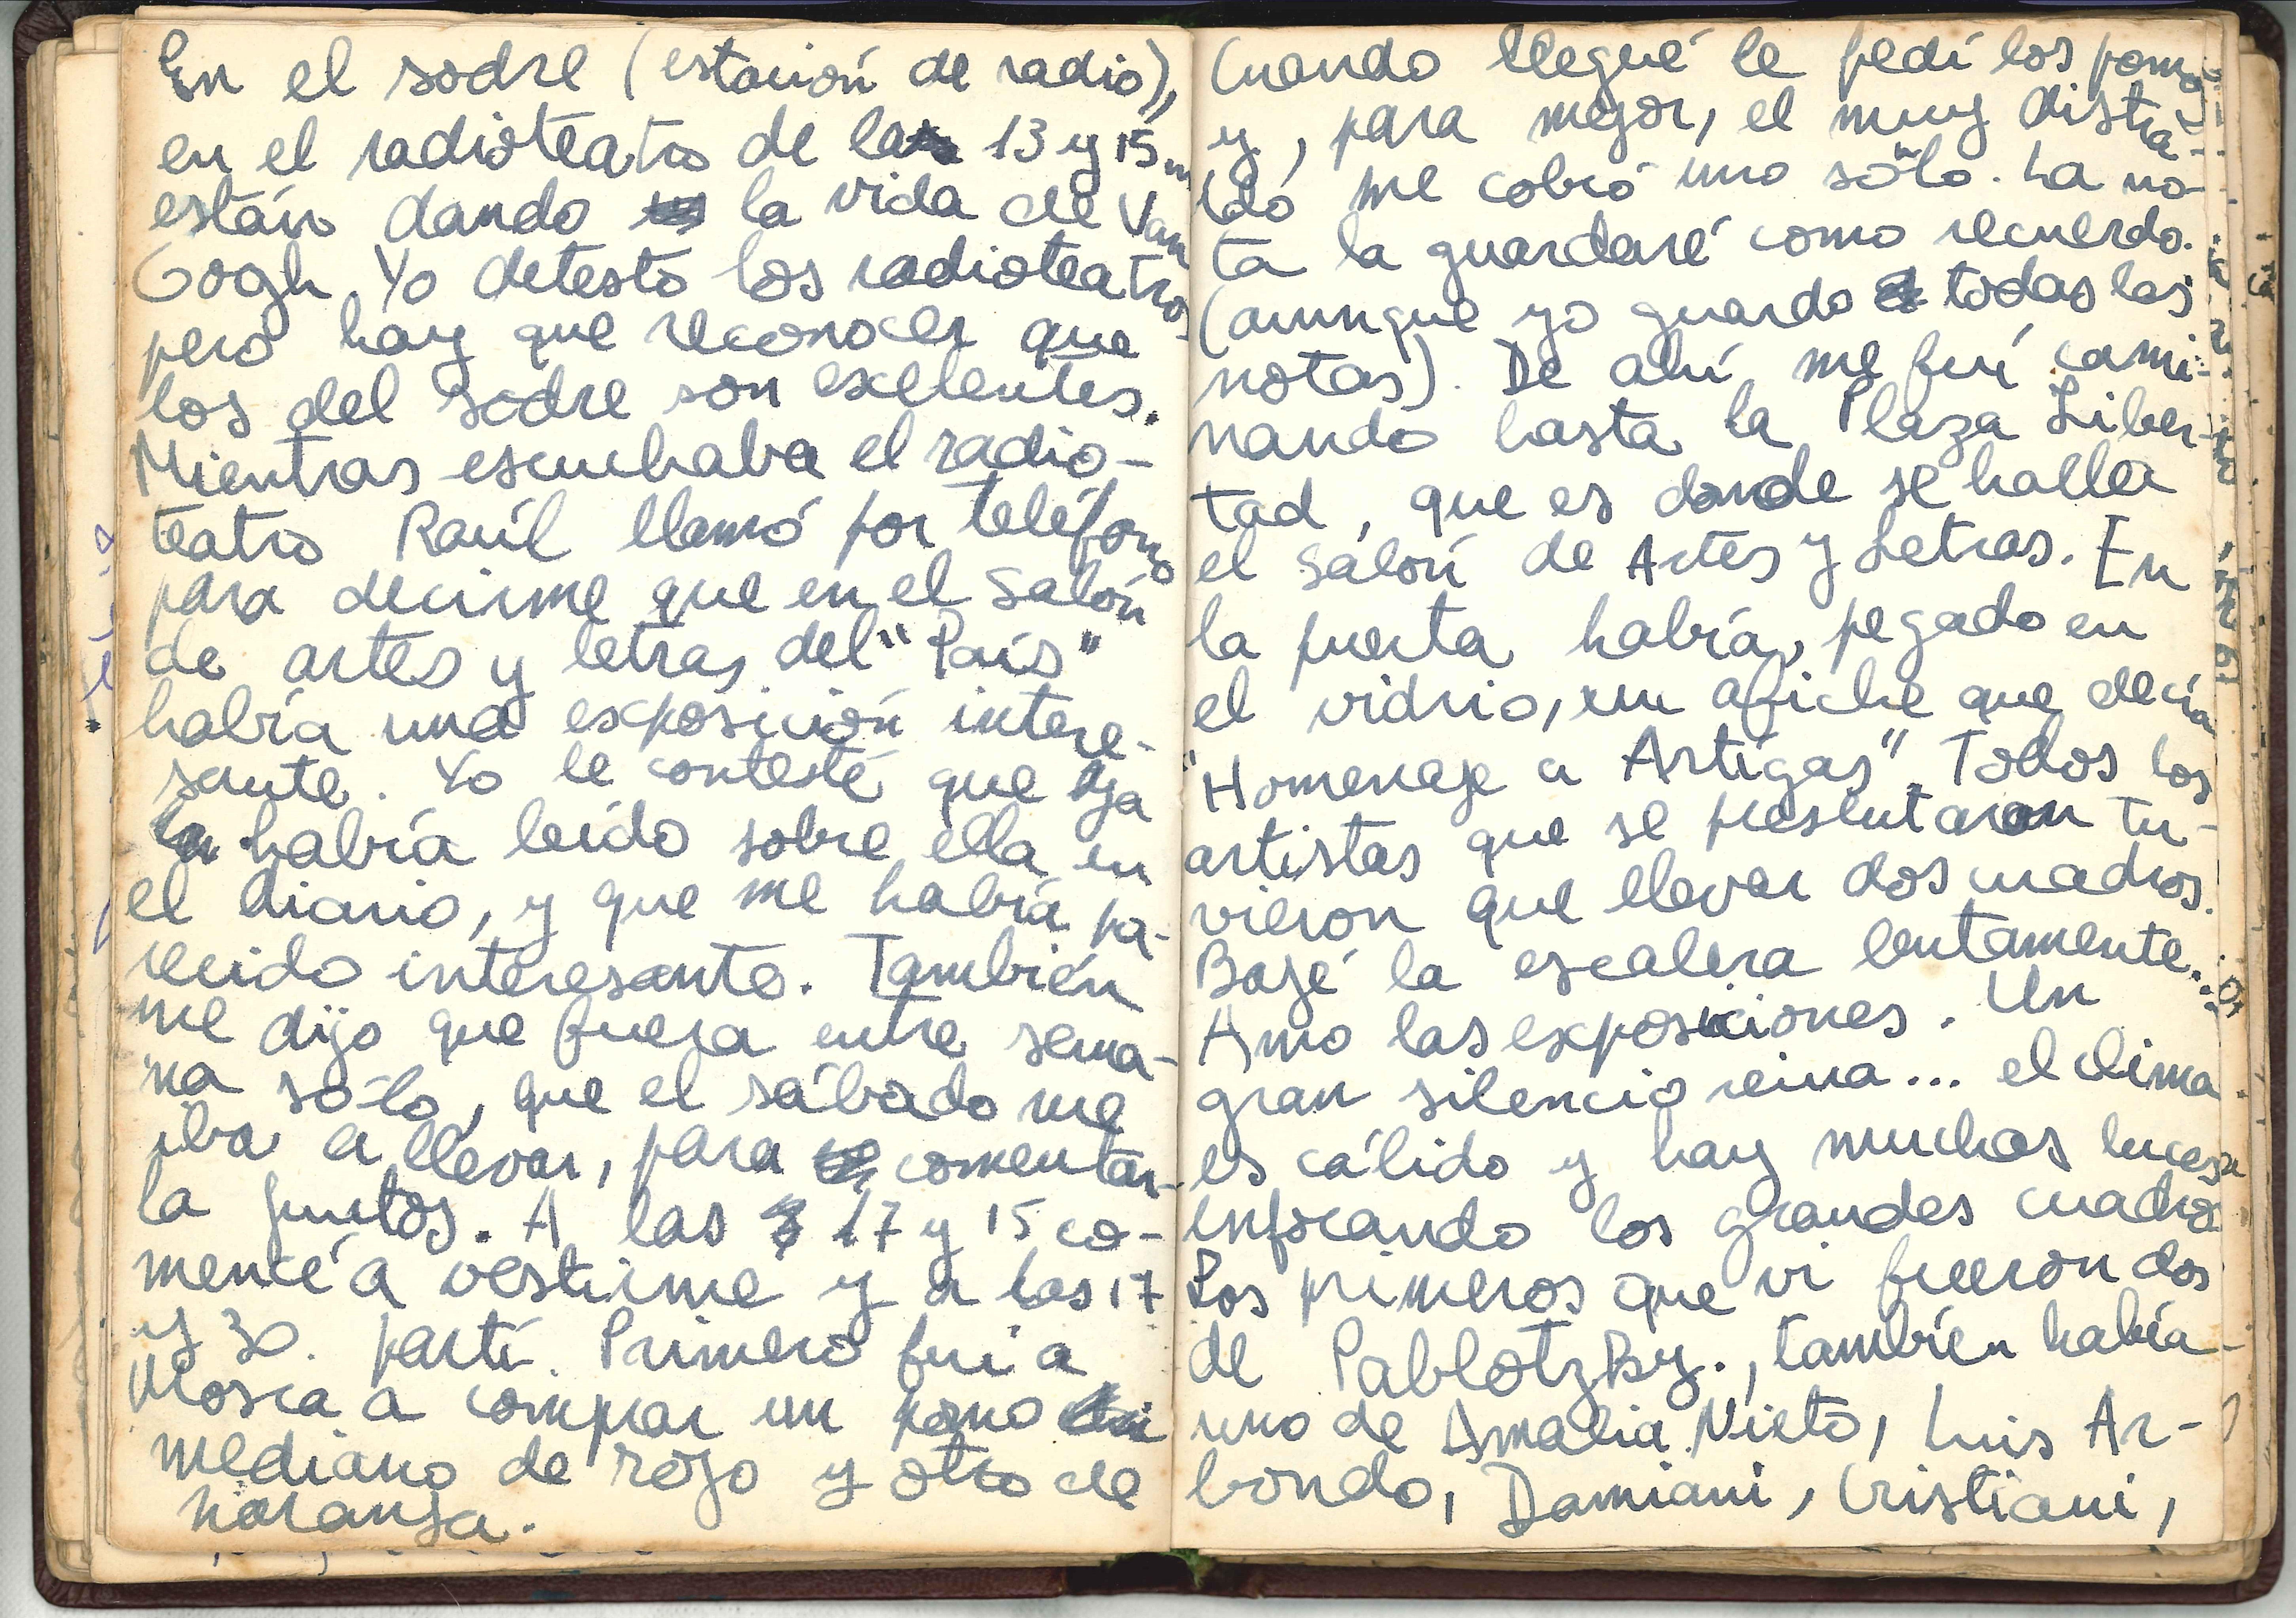 En el sodre (estación de radio),
en el radioteatro de las 13 y 15 m
están dando la vida de Van
Gogh. Yo detesto los radioteatros
pero hay que reconocer que
los del sodre son exelentes.
Mientras escuchaba el radio-
teatro Raúl llamó por teléfono
para decirme que en el Salón
de artes y letras del "País"
había una exposición intere-
sante. Yo le contesté que ya
había leído sobre ella en
el diario, y que me había pa-
recido interesante. También
me dijo que fuera entre sema-
na sólo, que el sábado me
iba a llevar, para comentar-
la juntos. A las 17 y 15 co-
mencé a vestirme y a las 17
y 30 partí. Primero fui a
Mosca a comprar un pomo
mediano de rojo y otro de
naranja.
Cuando llegué le pedí los pomos
y, para mejor, el muy distra-
ído me cobró uno sólo. La no-
ta la guardaré como recuerdo.
(aunque yo guardo todas las
notas). De ahí me fuí cami-
nando hasta la Plaza Liber-
tad, que es donde se halla
el Salón de Artes y Letras. En
la puerta había, pegado en
el vidrio, un afiche que decía
"Homenaje a Artigas". Todos los
artistas que se presentaron tu-
vieron que llevar dos cuadros.
Bajé la escalera lentamente...
Amo las exposiciones. Un
gran silencio reina... el clima
es cálido y hay muchas luces
enfocando los grandes cuadros
Los primeros que vi fueron dos
de Pablotzky., también había
uno de Amalia Nieto, Luis Ar-
bondo, Damiani, Cristiani,